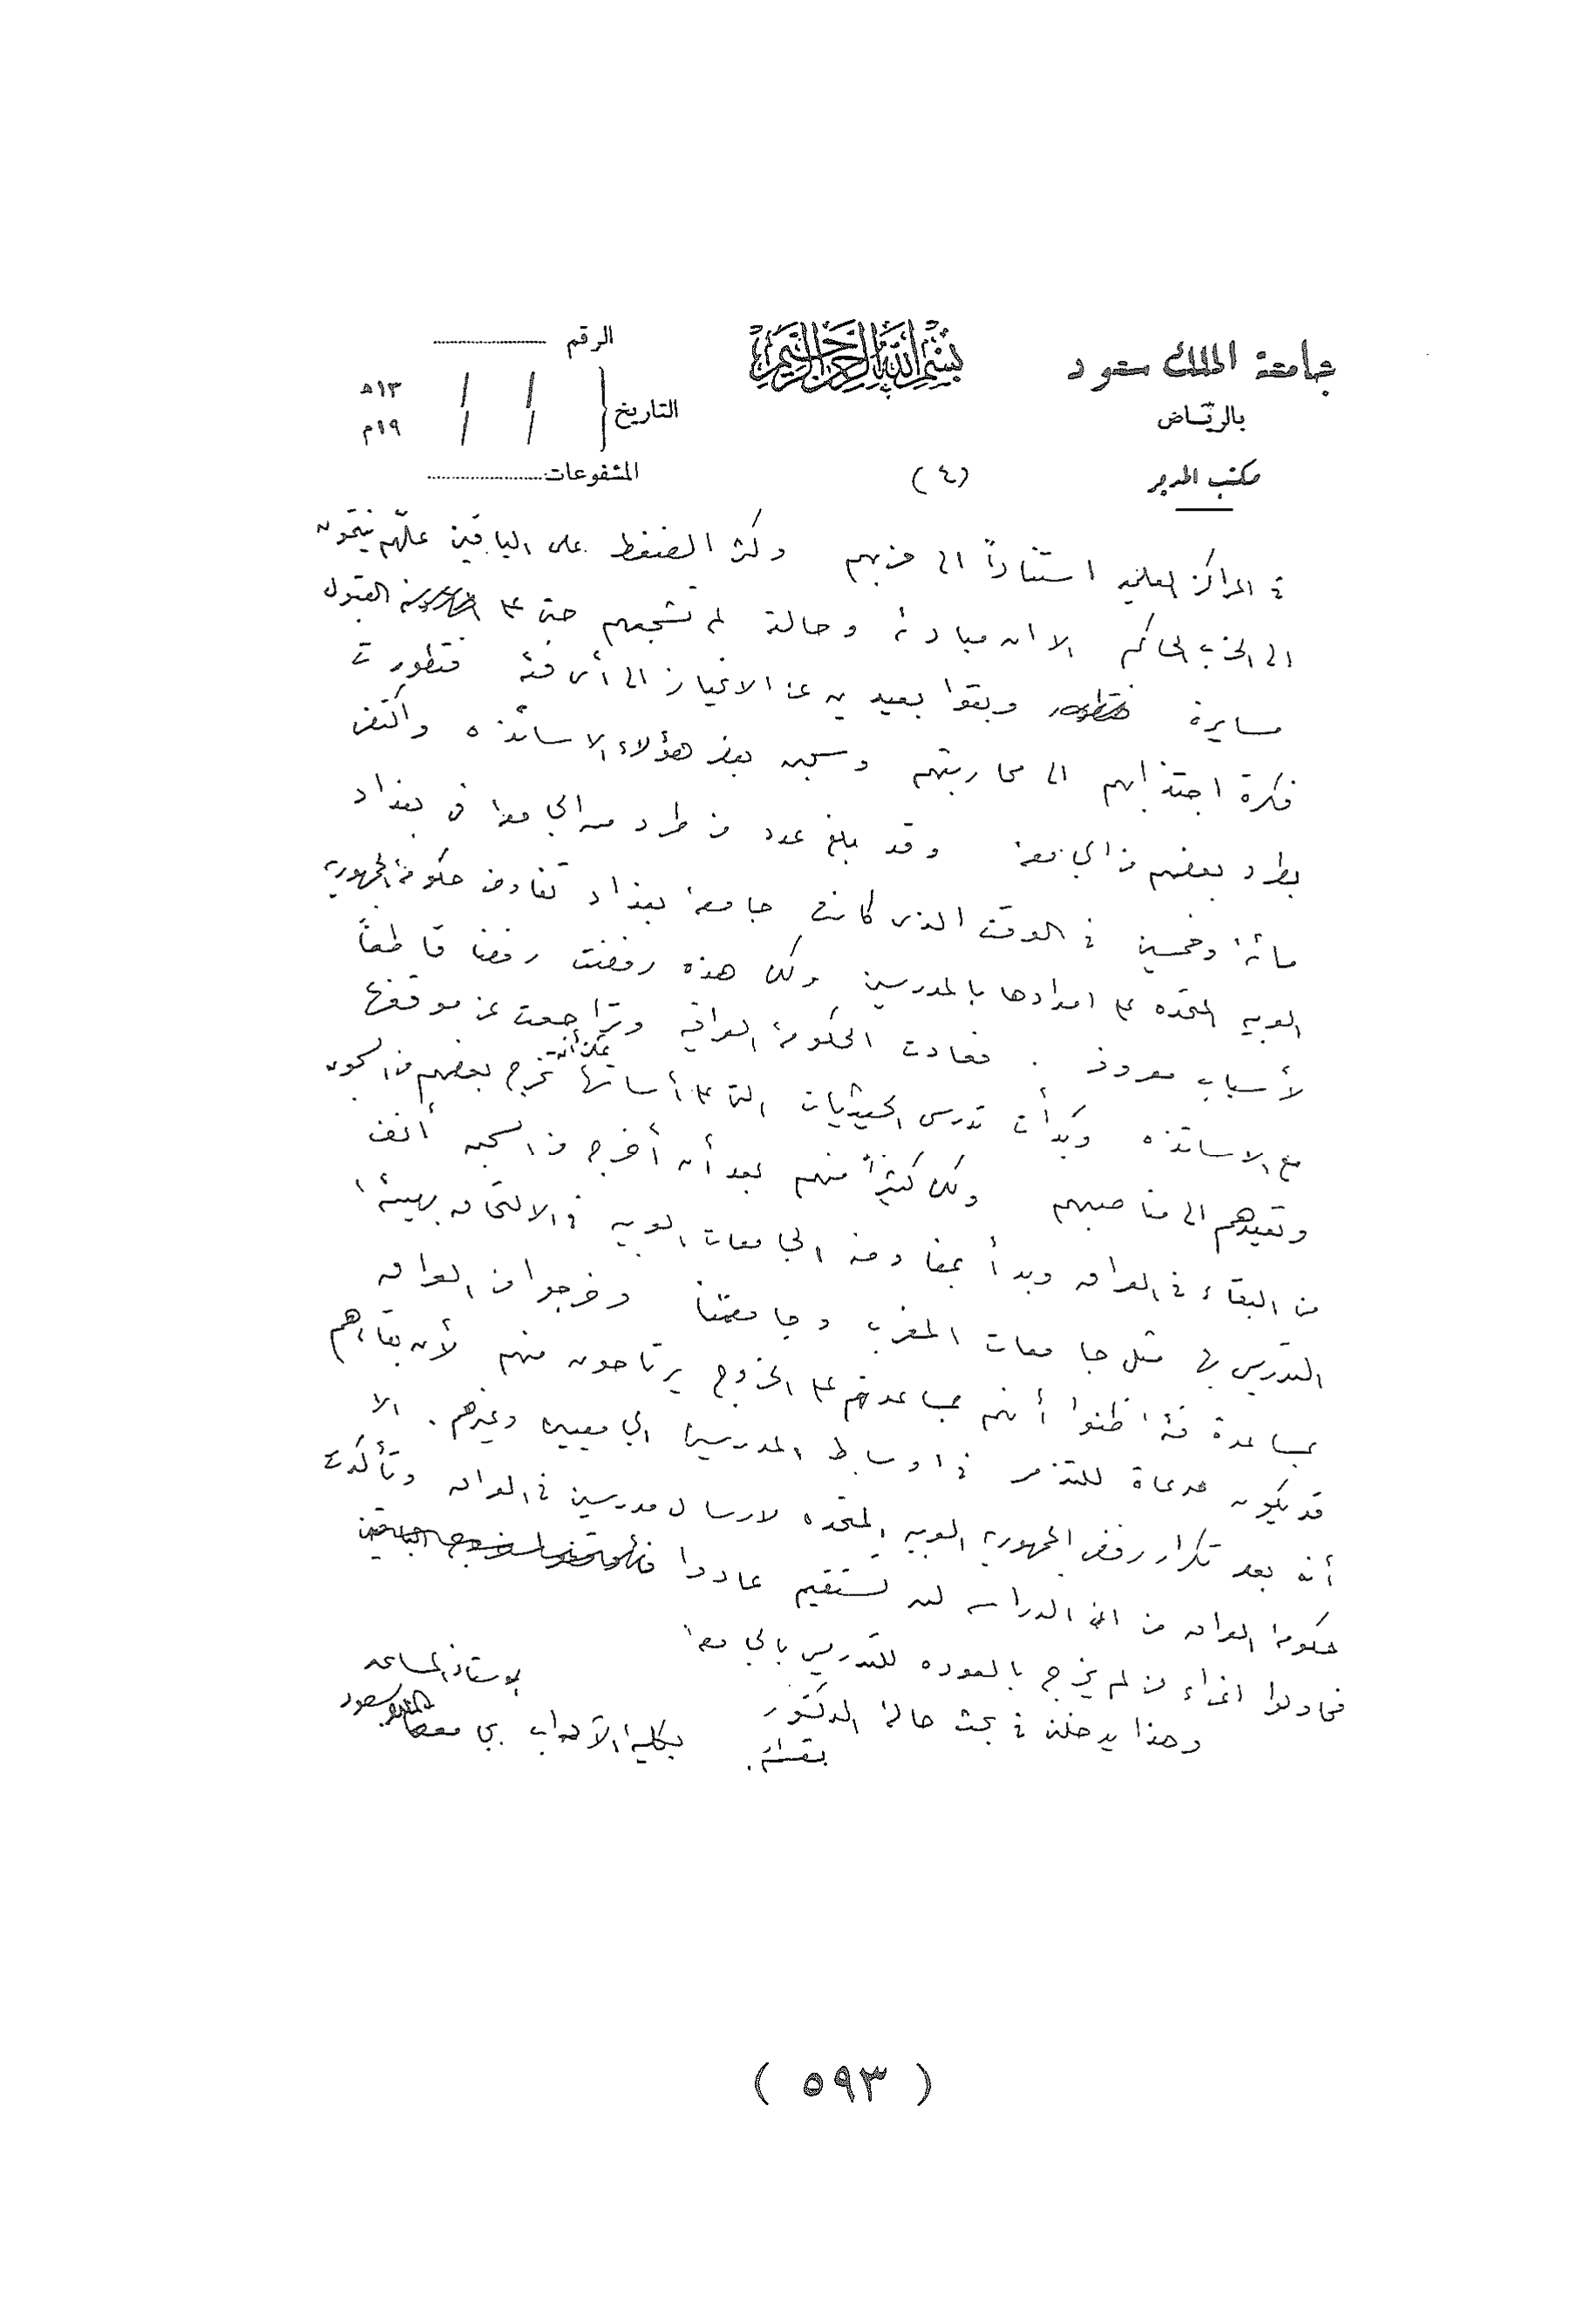 جامعة الملك سعود
بالرياض
مكتب المدير
بسم الله الرحمن الرحيم
الرقم
التاريخ / / ١٣هـ
/ / ١٩م
المشفوعات
(٤)
في المراكز العلميه استناداً الى حزبهم وكثر الضغط على الباقين علّهم ينتمون
الى الحزب الحاكم الا ان مبادئه وحالته لم تشجعهم حتى على القبول
مسايرة وبقوا بعيدين عن الانحياز الى أى فئه فتطورت
فكرة اجتذابهم الى محاربتهم وسجن بعض هؤلاء الاساتذه واكتفى
بطرد بعضهم من الجامعة وقد بلغ عدد من طرد من الجامعة في بغداد
مائة وخمسين في الوقت الذى كانت جامعة بغداد تفاوض حكومة الجمهورية
العربيه المتحده على امدادها بالمدرسين ولكن هذه رفضت رفضا قاطعاً
لأسباب معروفة . فعادت الحكومة العراقيه وتراجعت عن موقفها
مع الاساتذه وبدأت تدرس الحيثيات التى على أساسها يمكن أن تخرج بعضهم من السجون
وتعيدهم الى مناصبهم ولكن كثيراً منهم بعد أن أخرج من السجن أنف
من البقاء في العراق وبدأ بمفاوضة الجامعات العربيه في الالتحاق بهيئة
التدريس بها مثل جامعات المغرب وجامعتنا وخرجوا من العراق
بمساعدة فئة ظنوا أنهم بمساعدتهم على الخروج يرتاحون منهم لأن بقاءهم
قد يكون مدعاة للتذمر في اوساط المدرسين الجامعيين وغيرهم . الا
أنه بعد تكرار رفض الجمهورية العربيه المتحده لارسال مدرسين في العراق وتأكدت
حكومة العراق من ان الدراسه لن تستقيم عادوا
فحاولوا اغراء من لم يخرج بالعوده للتدريس بالجامعة
وهذا يدخلنا في بحث حالة الدكتور الاستاذ المساعد
بكلية الآداب بجامعة الملك سعود
( ٥٩٣ )